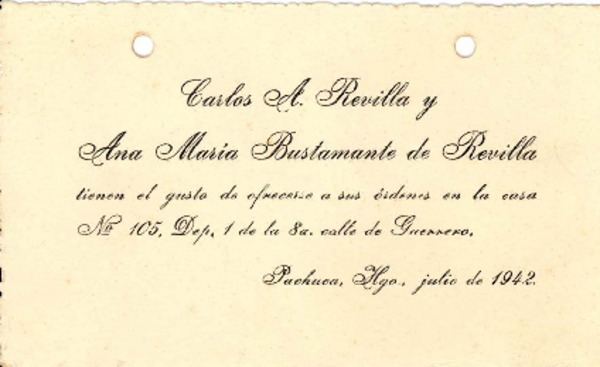 Carlos A. Revilla y
Ana María Bustamante de Revilla
tienen el gusto de ofrecerse a sus órdenes en la casa
Nº 105, Dep. 1 de la 8a. calle de Guerrero.
Pachuca, Hgo., julio de 1942.